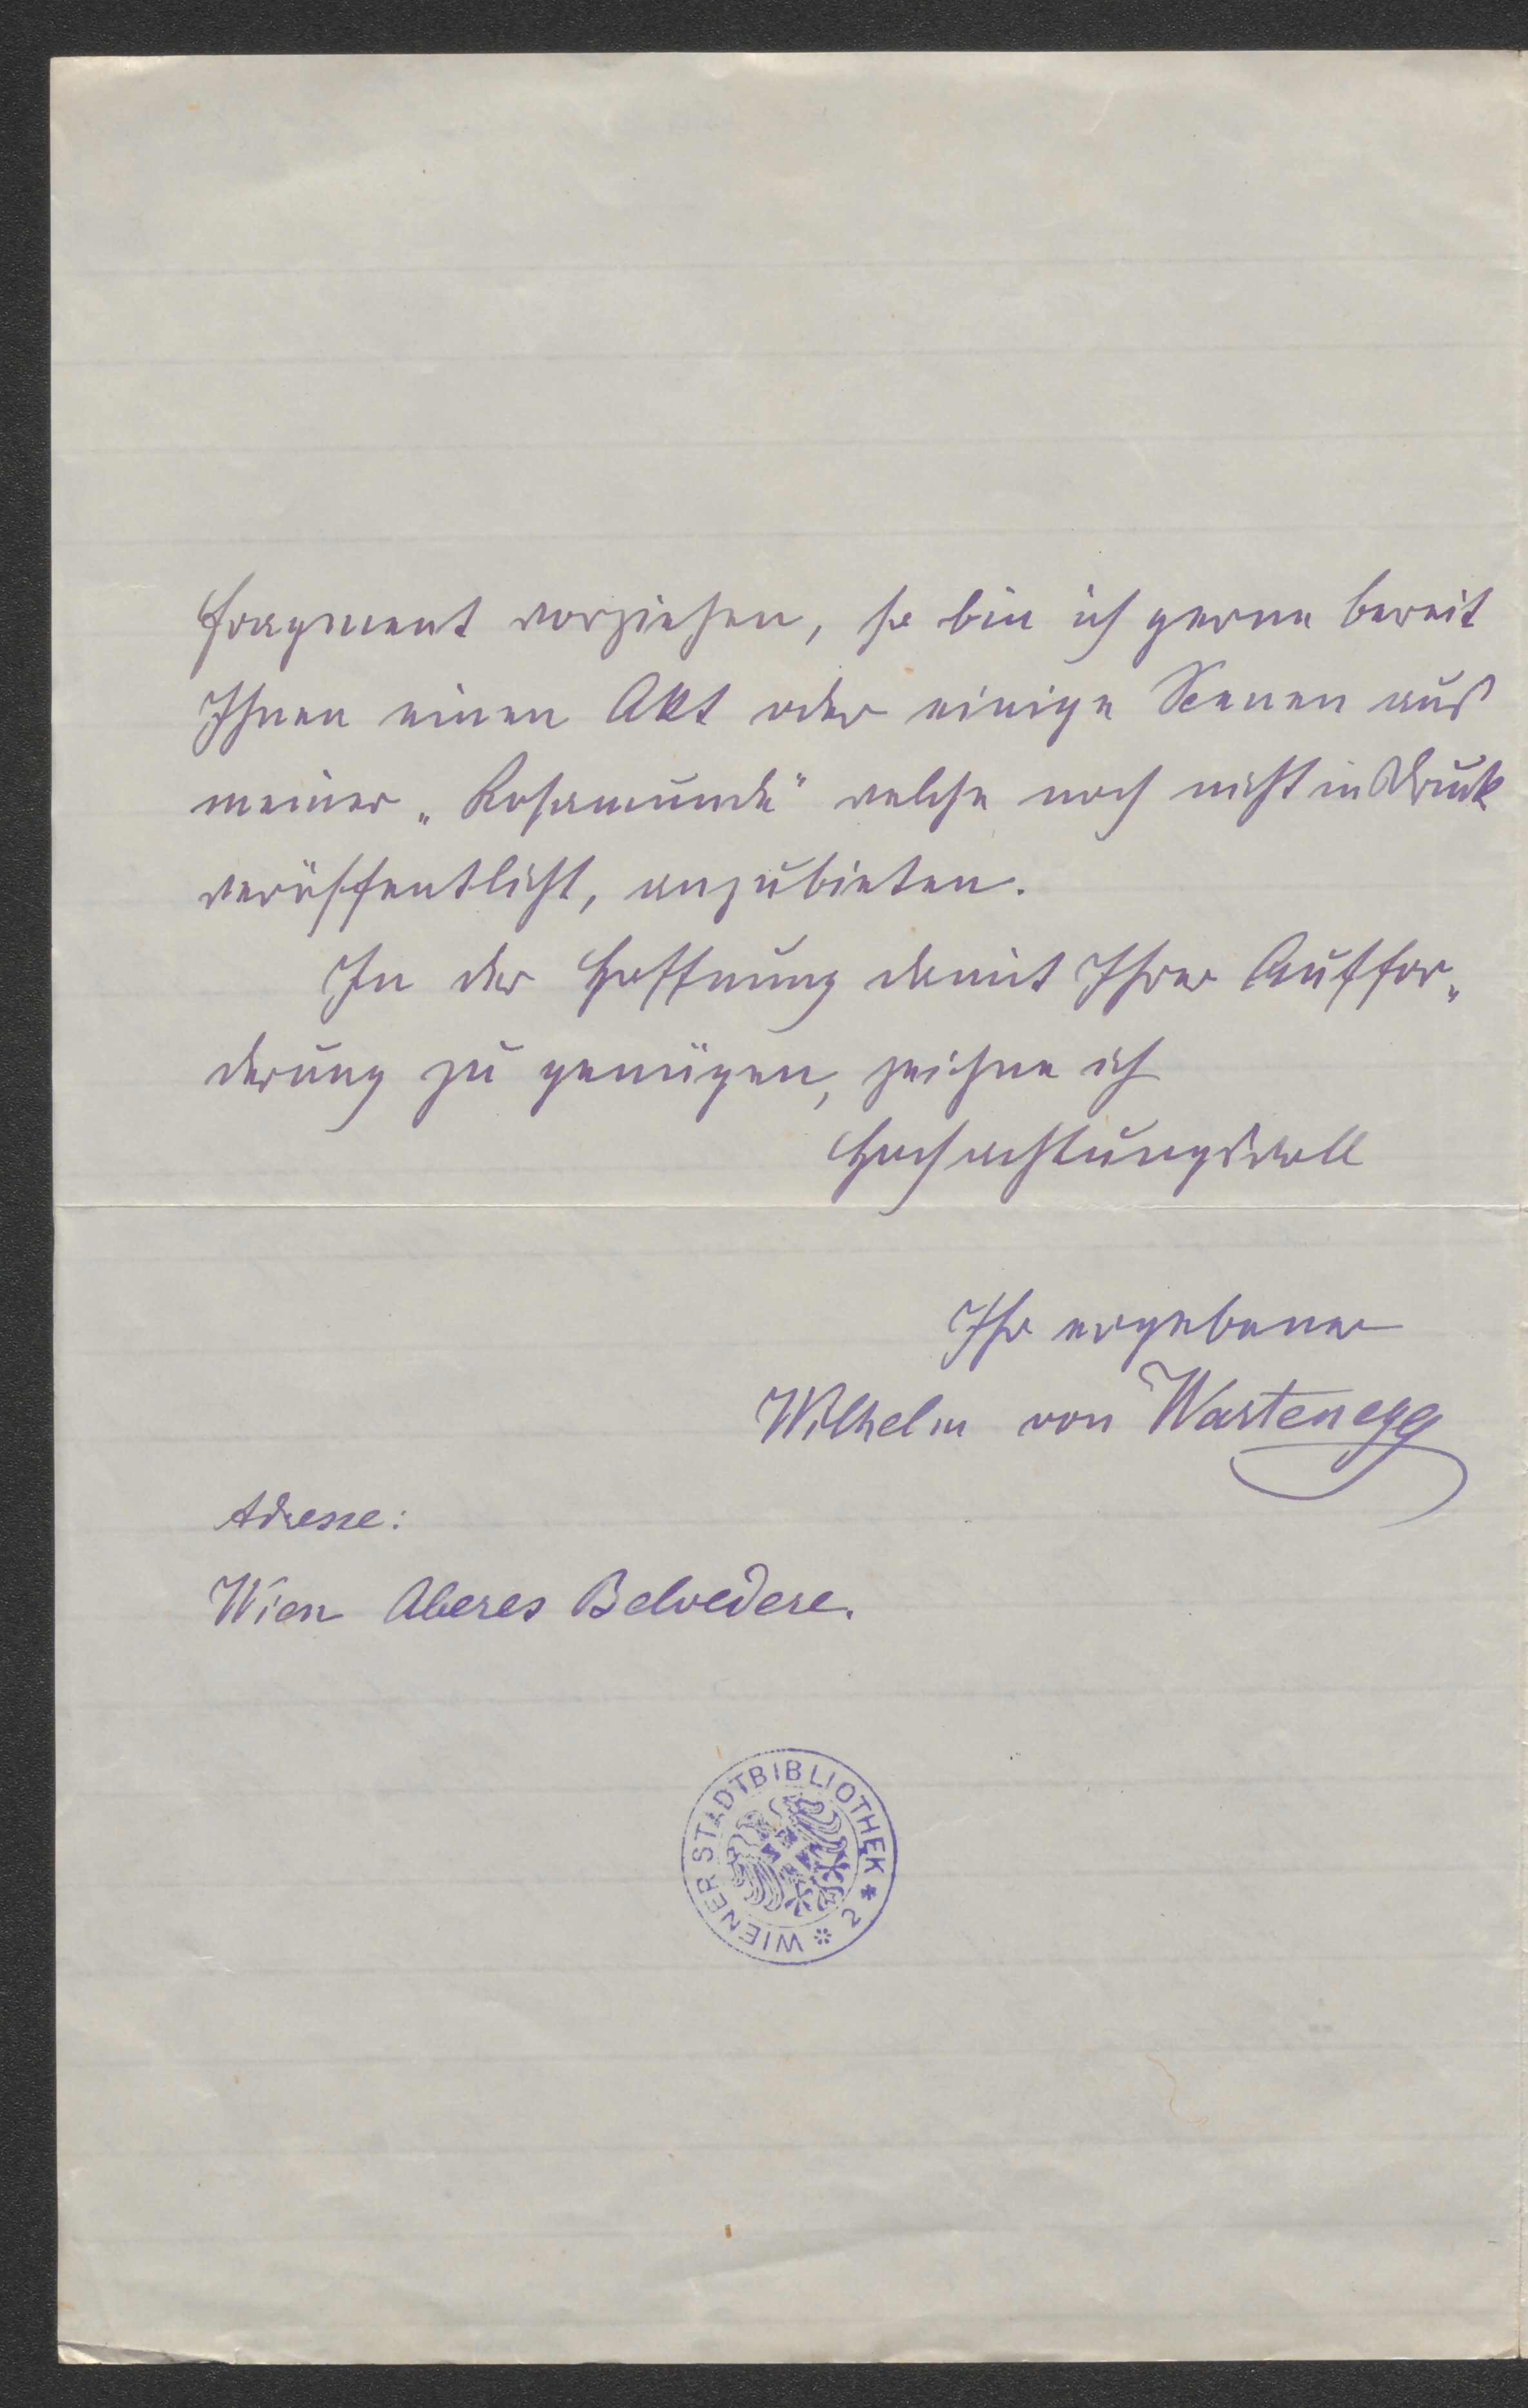 Fragment vorziehen, so bin ich gerne bereit
Ihnen einen Akt oder einige Scenen aus
meiner „Rosamunde" welche noch nicht in Druck
veröffentlicht, anzubieten.
In der Hoffnung damit Ihrer Auffor„
derung zu genügen, zeichne ich
Hochachtungsvoll
Ihr ergebener
Wilhelm von Wartenegg
Adresse:
Wien Oberes Belvedere.
WIENER STADTBIBLIOTHEK * 2 *